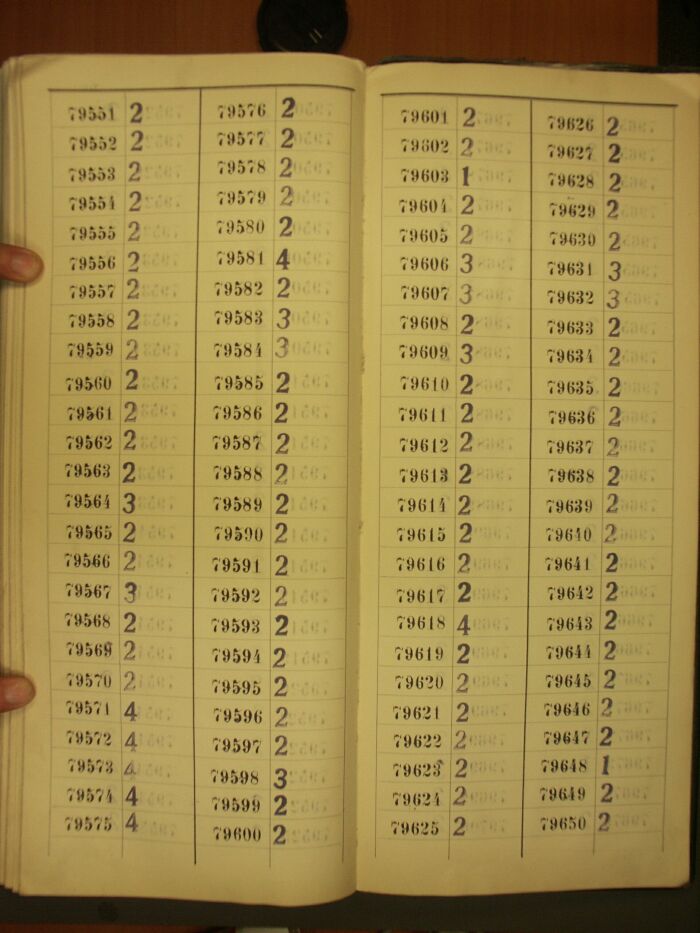 79551 2
79552 2
79553 2
79554 2
79555 2
79556 2
79557 2
79558 2
79559 2
79560 2
79561 2
79562 2
79563 2
79564 3
79565 2
79566 2
79567 3
79568 2
79569 2
79570 2
79571 4
79572 4
79573 4
79574 4
79575 4
79576 2
79577 2
79578 2
79579 2
79580 2
79581 4
79582 2
79583 3
79584 3
79585 2
79586 2
79587 2
79588 2
79589 2
79590 2
79591 2
79592 2
79593 2
79594 2
79595 2
79596 2
79597 2
79598 3
79599 2
79600 2
79601 2
79602 2
79603 1
79604 2
79605 2
79606 3
79607 3
79608 2
79609 3
79610 2
79611 2
79612 2
79613 2
79614 2
79615 2
79616 2
79617 2
79618 4
79619 2
79620 2
79621 2
79622 2
79623 2
79624 2
79625 2
79626 2
79627 2
79628 2
79629 2
79630 2
79631 3
79632 3
79633 2
79634 2
79635 2
79636 2
79637 2
79638 2
79639 2
79640 2
79641 2
79642 2
79643 2
79644 2
79645 2
79646 2
79647 2
79648 1
79649 2
79650 2